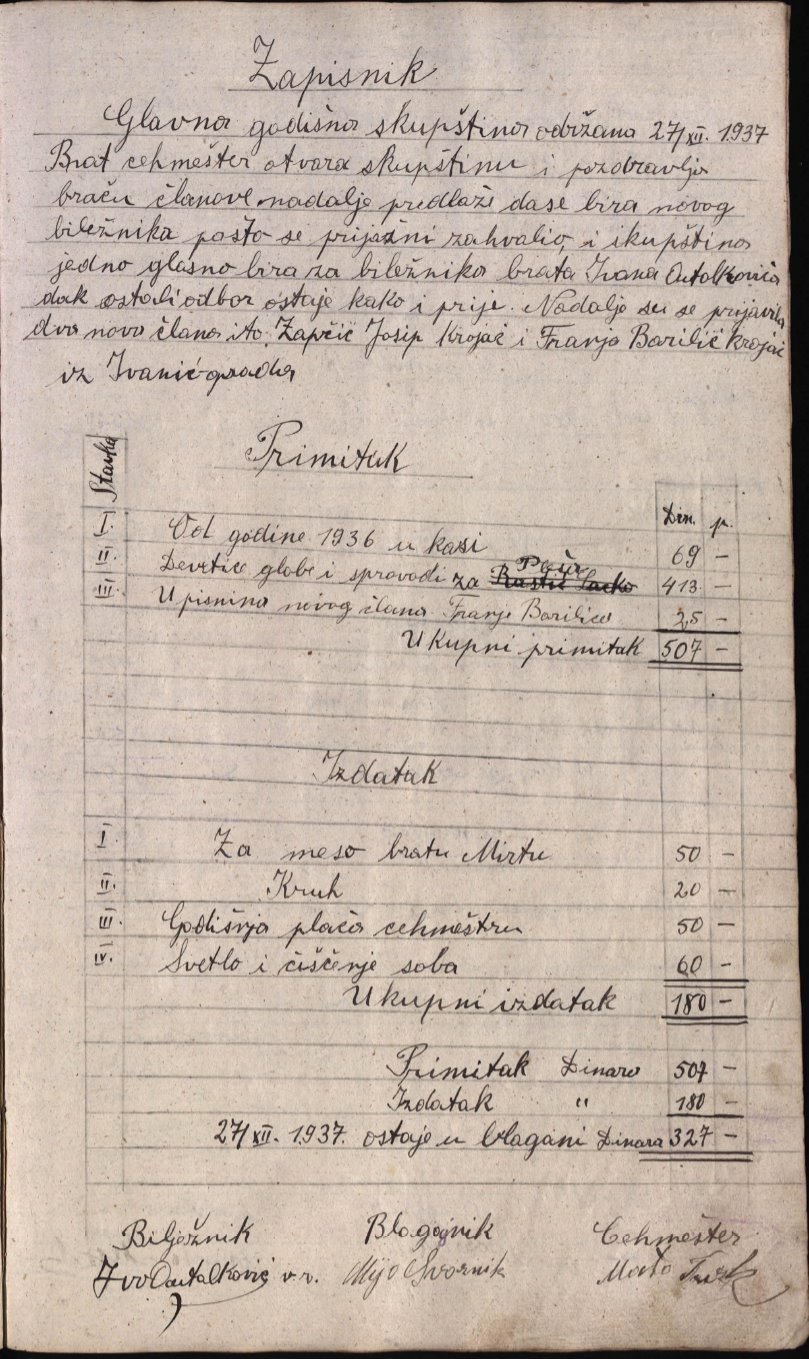 Zapisnik
Glavna godišna skupština održana 27/XII. 1937
Brat cehmešter otvara skupštinu i pozdravlja
braću članove nadalje predlaže dase bira novog
biležnika pošto se prijašni zahvalio, i skupština
jedno glasno bira za biležnika brata Ivana Antolkovića
dok ostali odbor ostaje kako i prije. Nadalje su se prijavila
dva nova člana i to, Zapčić Josip Krojač i Franjo Barilić krojač
iz Ivanićgrada
Stavka Primitak
Din. p.
I. Od godine 1936 u kasi 69 –
II. Devrtice globe i sprovodi za 413 –
III. Upisnina novog člana Franje Barilića 25 –
Ukupni primitak 507 –
Izdatak
I. Za meso bratu Mirtu 50 –
II. Kruh 20 –
III. Godišnja plaća cehmeštru 50 –
IV. Svetlo i čišćenje soba 60 –
Ukupni izdatak 180 –
Primitak Dinara 507 –
Izdatak " 180 –
27/XII. 1937. ostaje u blagani Dinara 327 –
Bilježnik Blagajnik Cehmešter
Ivo Antalković v.r. Mijo Svornik Mato